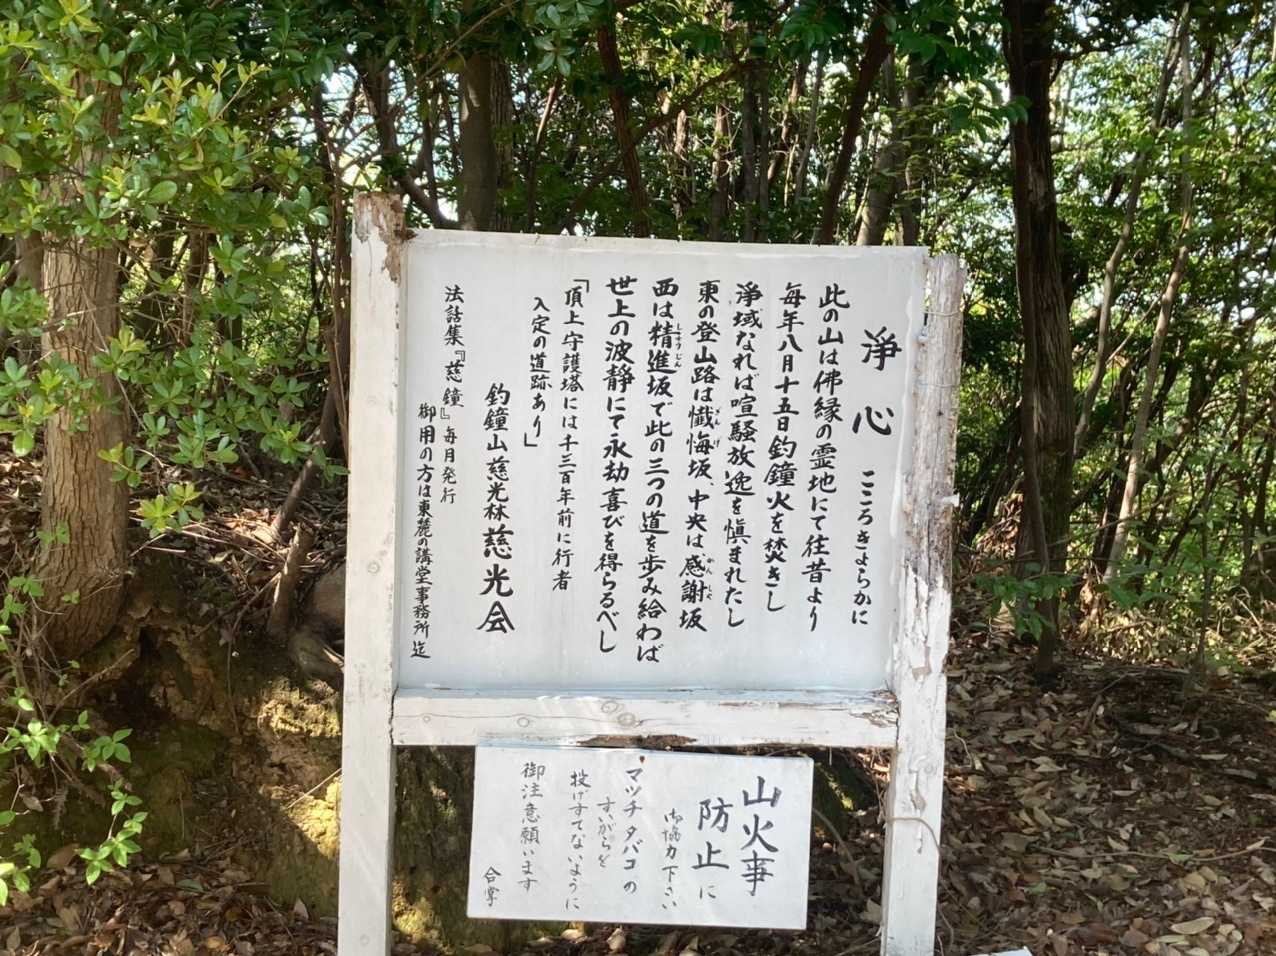 浄心 こころきよらかに
此の山は佛縁の霊地にて往昔より
毎年八月十五日釣鐘火を焚きし
浄域なれば喧騒放逸を愼まれたし
東の登山路は懺悔坂中央は感謝坂
西は精進坂で此の三つの道を歩み給わば
世上の波静にて永劫喜びを得らるべし
「頂上守護塔には千三百年前に行者
入定の道跡あり」
釣鐘山慈光林慈光会
法話集『慈鐘』毎月発行
御用の方は東麓の講堂事務所迄
山火事
防止に
御協力下さい
マッチタバコの
すいがらを
投げすてないように
御注意願います
合掌